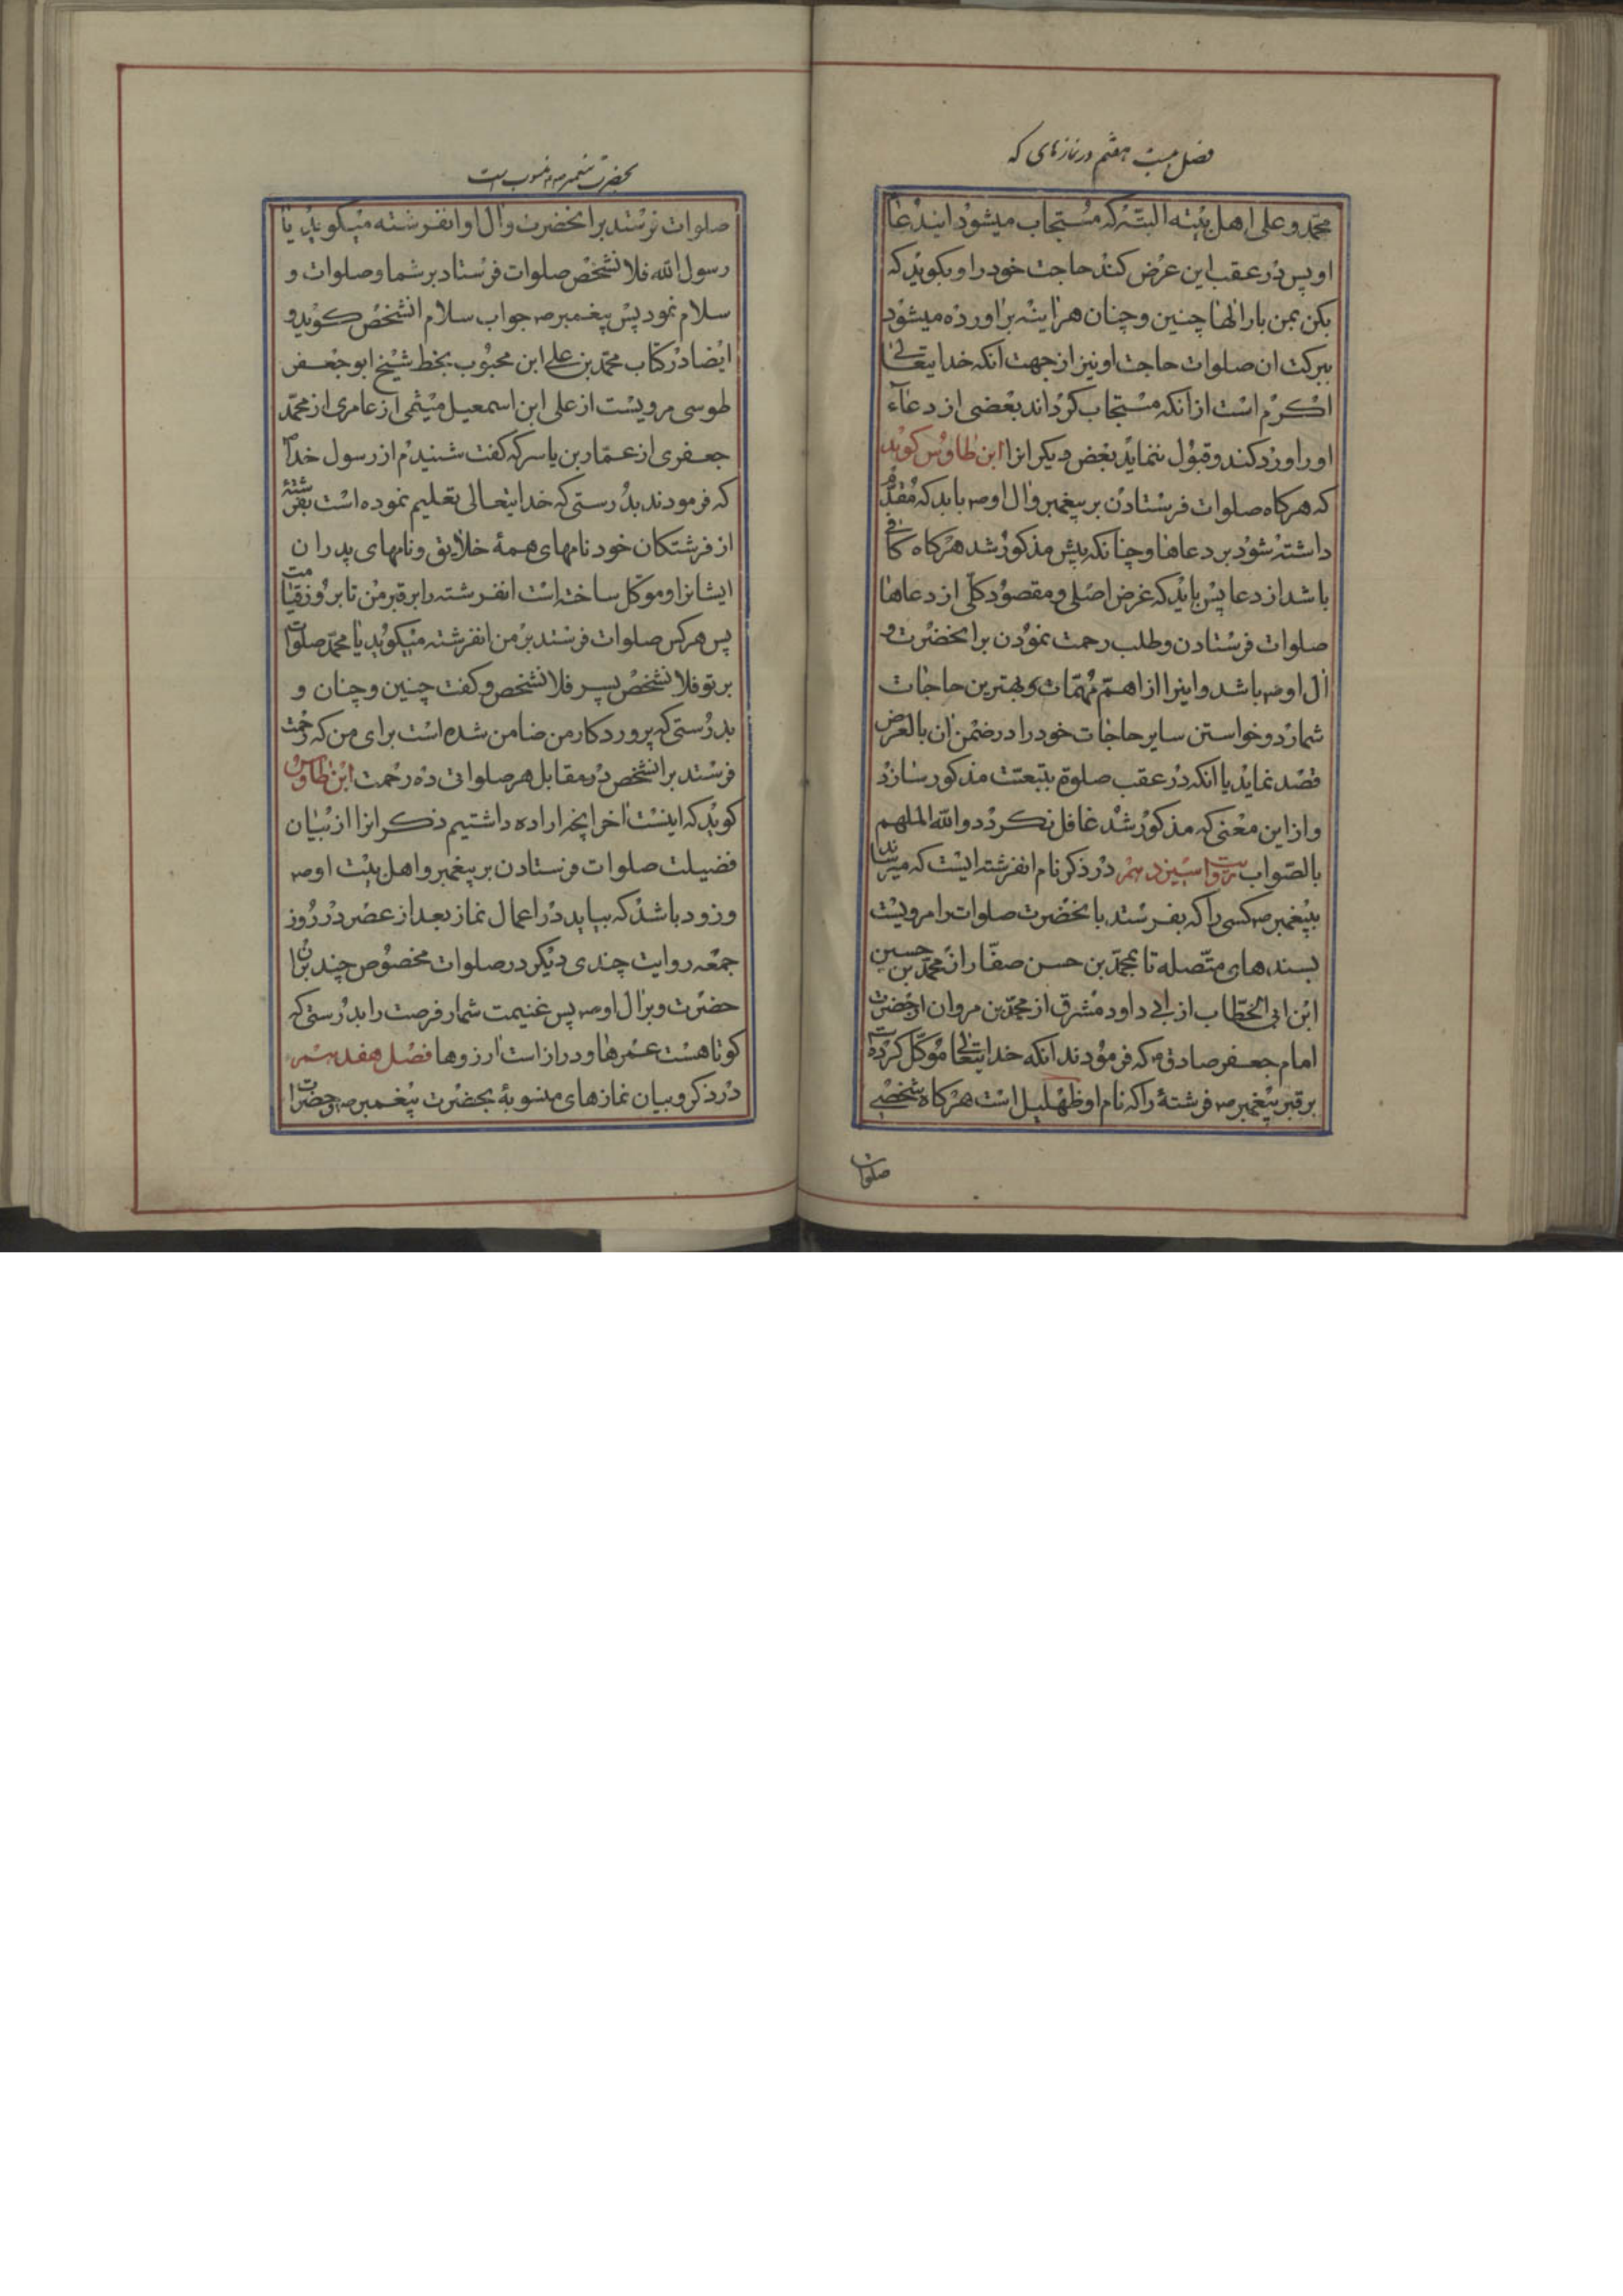 فصل بیست هفتم در نمازهای که
محمّد و علی اهل بیته البتّه که مستجاب میشود ایندعا
او پس در عقب این عرض کند حاجت خود را و بکوید که
بکن بمن بار الها چنین و چنان هراینه براورده میشود
ببرکت ان صلوات حاجت او نیز از جهت انکه خدایتعالی
اکرم است از انکه مستجاب کرداند بعضی از دعاء
او را و رد کند و قبول ننماید بعض دیکر انرا ابن طاوس کوید
که هرکاه صلوات فرستادن بر پیغمبر و ال او ص باید که مقدّم
داشته شود بر دعاها و چنانکه پیش مذکور شد هرکاه کافی
باشد از دعا پس باید که غرض اصلی و مقصود کلّی از دعاها
صلوات فرستادن و طلب رحمت نمودن بر انحضرت و
ال او ص باشد و اینرا از اهمّ مهمّات و بهترین حاجات
شمارد و خواستن سایر حاجات خود را در ضمن ان بالعرض
قصد نماید یا انکه در عقب صلوة بتبعیّت مذکور سازد
و از این معنی که مذکور شد غافل نکردد و الله الملهم
بالصّواب در ذکر نام انفرشته ایست که میرساند
بپیغمبر ص کسی را که بفرستد بانحضرت صلوات را مرویست
بسندهای متّصله تا بمحمّد بن حسن صفّار از محمّد بن حسین
ابن ابی الخطّاب از ابی داود مشرق از محمّد بن مروان از حضرت
امام جعفر صادق ع که فرمودند انکه خدایتعالی موکّل کرده
بر قبر پیغمبر ص فرشتهٔ را که نام او ظهلیل است هرکاه شخصی
صلوات
بحضرت پیغمبر ص منسوب است
صلوات فرستد بر انحضرت و ال او انفرشته میکوید یا
رسول الله فلانشخص صلوات فرستاد بر شما و صلوات و
سلام نمود پس پیغمبر ص جواب سلام انشخص کوید و
ایضا در کتاب محمّد بن علی ابن محبوب بخط شیخ ابو جعفر
طوسی مرویست از علی ابن اسمعیل میثمی از عامری از محمّد
جعفری از عمّار بن یاسر که کفت شنیدم از رسول خدا
که فرمودند بدرستی که خدایتعالی تعلیم نموده است بفرشتهٔ
از فرشتکان خود نامهای همهٔ خلایق و نامهای پدران
ایشانرا و موکّل ساخته است انفرشته را بر قبر من تا بروز قیامت
پس هرکس صلوات فرستد بر من انفرشته میکوید یا محمّد صلوات
بر تو فلانشخص پسر فلانشخص و کفت چنین و چنان و
بدرستی که پروردکار من ضامن شده است برای من که رحمت
فرستد بر انشخص در مقابل هر صلواتی ده رحمت ابن طاوس
کوید که اینست اخر انچه اراده داشتیم ذکر انرا از بیان
فضیلت صلوات فرستادن بر پیغمبر و اهل بیت او ص
و زود باشد که بیاید در اعمال نماز بعد از عصر در روز
جمعه روایت چندی دیکر در صلوات مخصوص چند بران
حضرت و بر ال او ص پس غنیمت شمار فرصت را بدرستی که
کوتاهست عمرها و دراز است ارزوها فصل هفدهم
در ذکر و بیان نمازهای منسوبهٔ بحضرت پیغمبر ص و حضرات